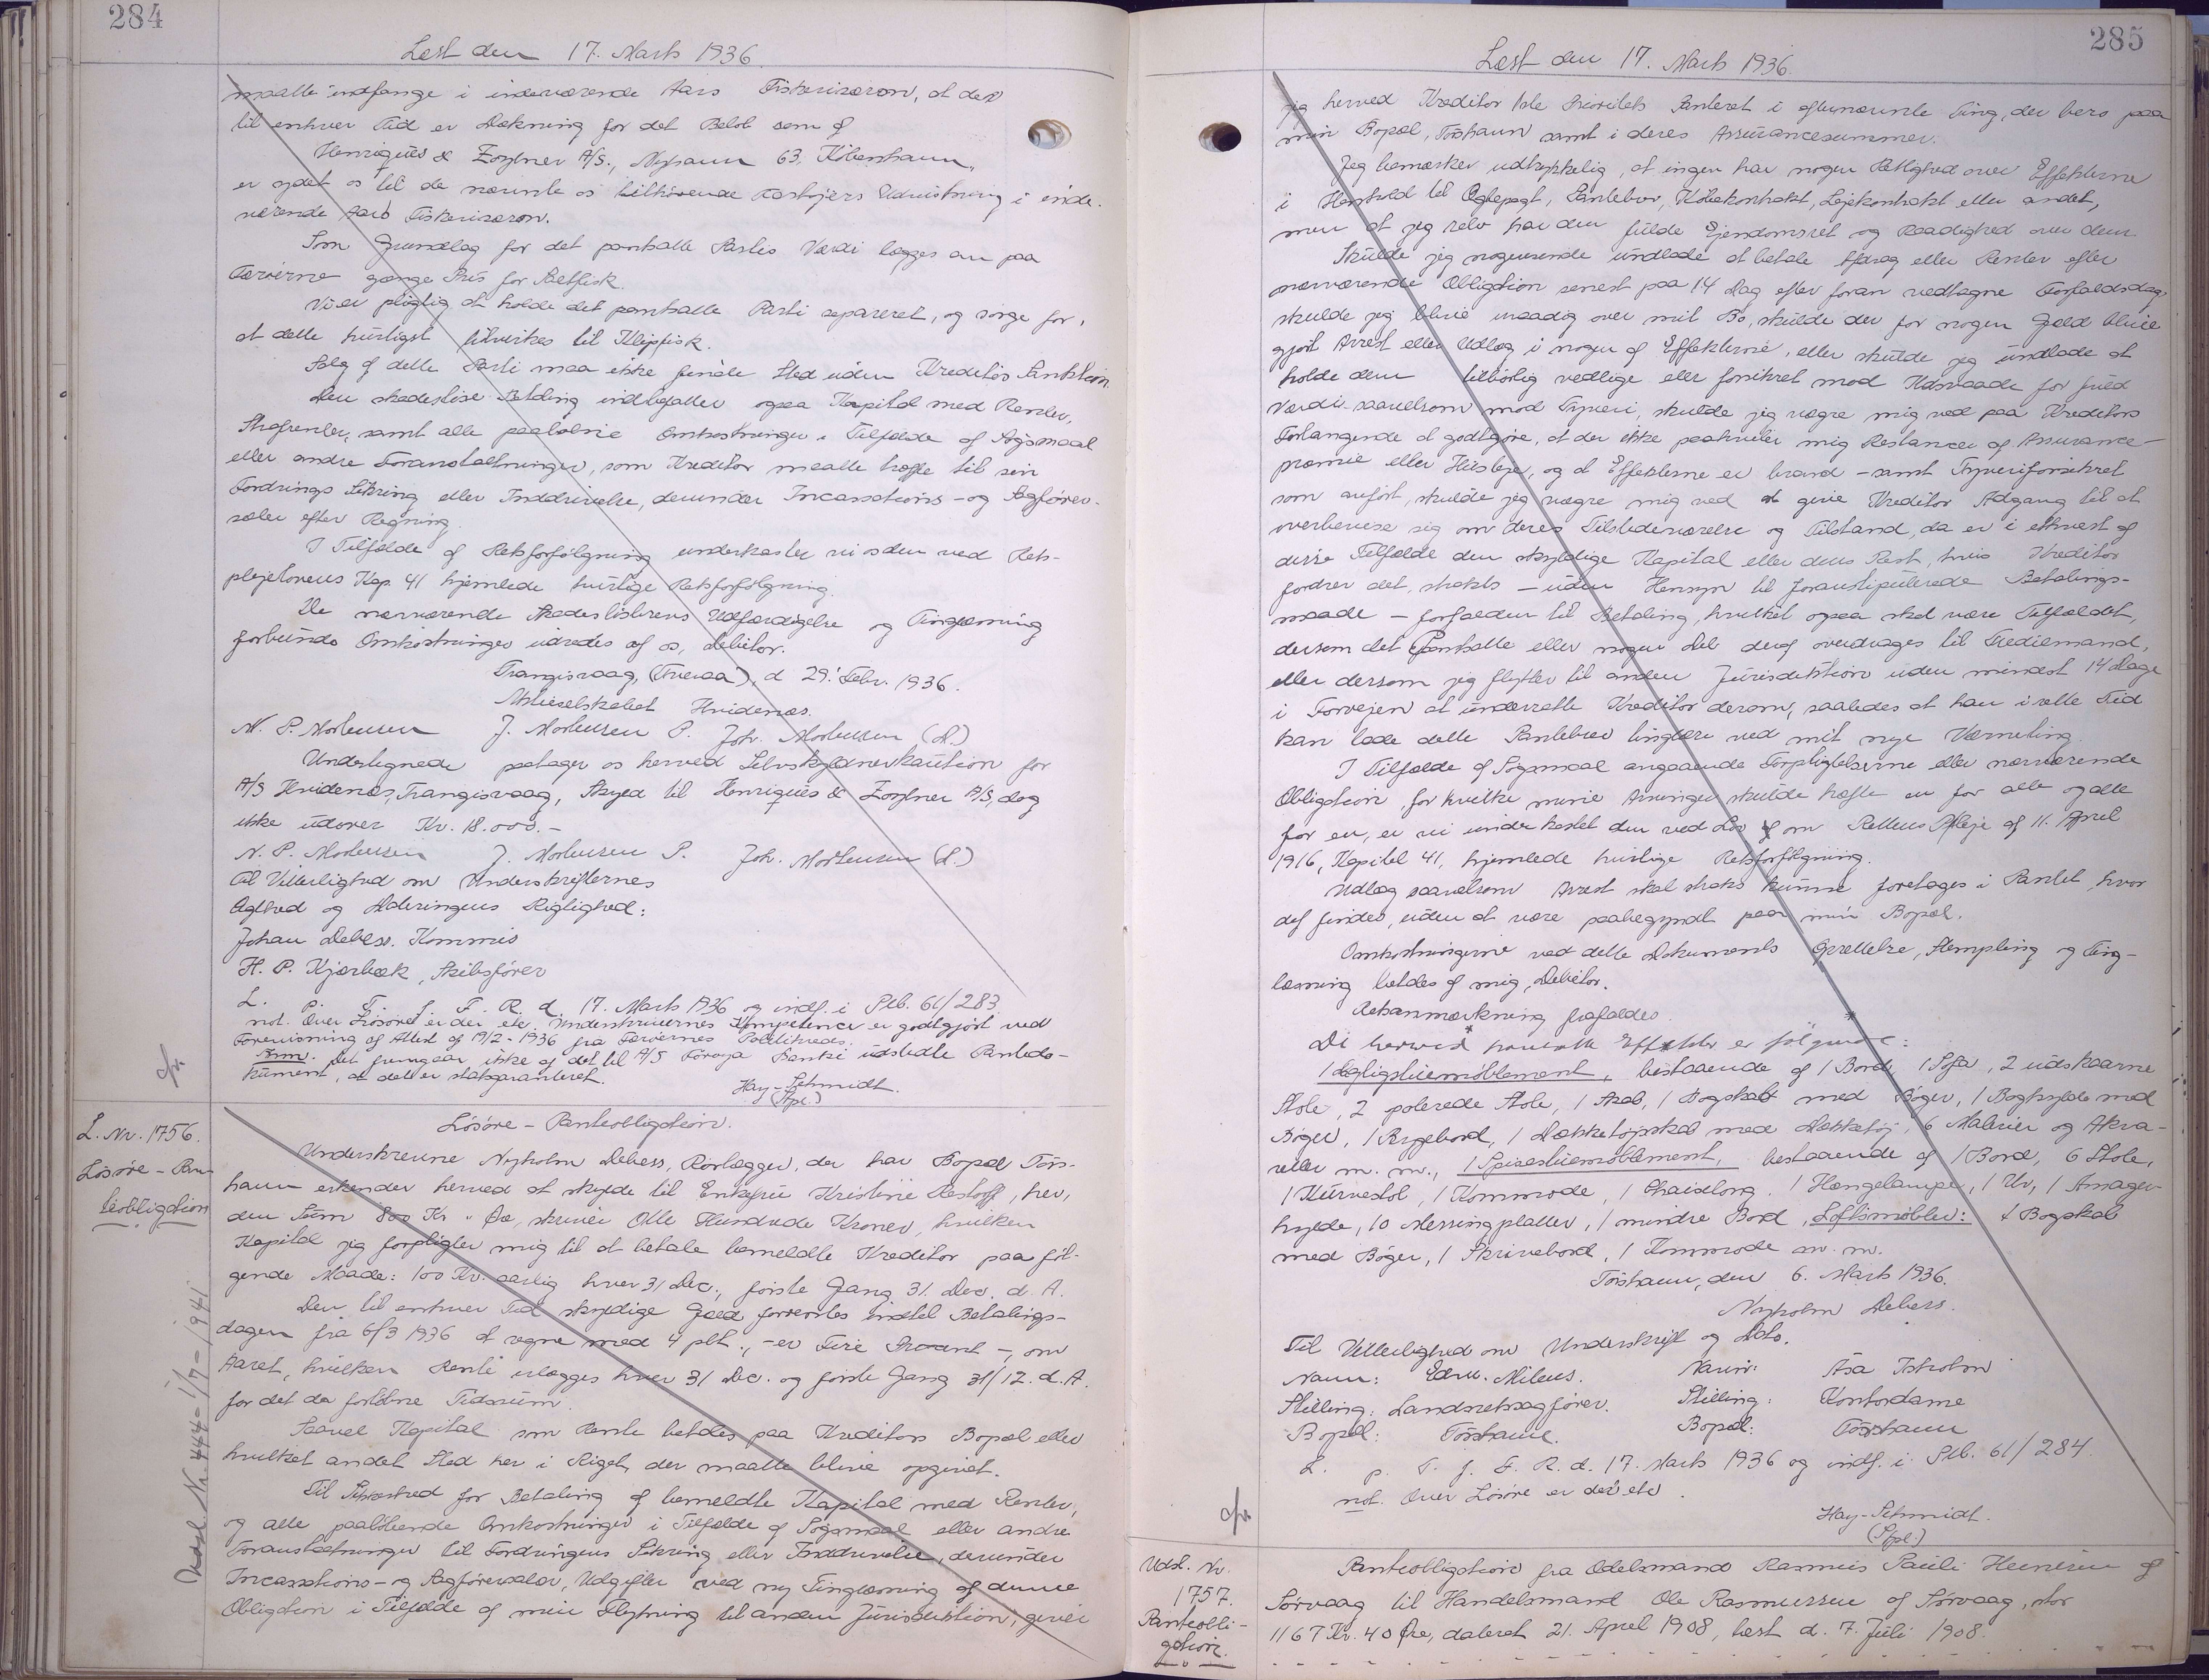 284
Læst den 17. Marts 1936.
maatte indfange i indeværende Aars Fiskerisæson, at der
til enhver Tid er Dækning for det Beløb som af
Henriques & Zøylner A/S., Nyhavn 63. København,
er ydet os til de nævnte os tilhørende Fartøjers Udrustning i inde-
værende Aars Fiskerisæson.
Som Grundlag for det pantsatte Partis Værdi lægges an paa
Færøerne gænge Pris for Saltfisk.
Vi er pligtig at holde det pantsatte Parti separeret, og sørge for,
at dette hurtigst tilvirkes til Klipfisk.
Salg af dette Parti maa ikke finde Sted uden Kreditors Sanktion
Den skadesløse Betaling indbefatter ogsaa Kapital med Renter,
Strafrenter, samt alle paaløbne Omkostninger i Tilfælde af Søgsmaal
eller andre Foranstaltninger, som Kreditor maatte træffe til sin
Fordrings Sikring eller Inddrivelse, derunder Incassations- og Sagfører-
salær efter Regning.
I Tilfælde af Retsforfølgning underkaster vi os den ved Rets-
plejelovens Kap. 41 hjemlede hurtige Retsforfølgning.
De nærværende Skadesløsbrevs Udfærdigelse og Tinglæsning
forbundne Omkostninger udredes af os, Debitor.
Trangisvaag, (Tveraa), d 29. Febr. 1936.
Aktieselskabet Hvidenæs.
N. P. Mortensen J. Mortensen P. Joh. Mortensen (L.)
Undertegnede paatager os herved Selvskyldnerkaution for
A/S Hvidenæs, Trangisvaag, Skyld til Henriques & Zøylner A/S, dog
ikke udover Kr. 18.000.-
N. P. Mortensen J. Mortensen P. Joh. Mortensen (L.)
Til Vitterlighed om Underskrifternes
Ægthed og Dateringens Rigtighed:
Johan Debess. Kommis
H. P. Kjærbæk, Skibsfører
L. p. T. f. F. R. d. 17. Marts 1936 og indf. i Ptb. 61/283
not. Over Løsøret er der etc. Underskrivernes Kompetence er godtgjort ved
Forevisning af Attest af 19/2-1936 fra Færøernes Politikreds.
Anm. Det fremgaar ikke af det til A/S Föroya Banki udstedte Pantedo-
kument, at det er statsgaranteret.
Hay-Schmidt.
(Spl.)
cfr.
L. Nr. 1756.
Løsøre - Pan-
teobligation
Udsl. Nr. 444 - 1/7 - 1941
Løsøre - Panteobligation.
Underskrevne Nyholm Debess, Rørlægger, der har Bopæl Tórs-
havn erkender herved at skylde til Enkefru Kristine Restorff, her,
den Sum 800 Kr " Øre, skriver Otte Hundrede Kroner, hvilken
Kapital jeg forpligter mig til at betale bemeldte Kreditor paa føl-
gende Maade: 100 Kr. aarlig hver 31 Dec., første Gang 31. Dec. d. A.
Den til enhver Tid skyldige Gæld forrentes indtil Betalings-
dagen fra 6/3 1936 at regne med 4 pCt., -er Fire Procent-, om
Aaret, hvilken Rente erlægges hver 31 Dec. og første Gang 31/12. d. A.
for det da forløbne Tidsrum.
Saavel Kapital som Rente betales paa Kreditors Bopæl eller
hvilket andet Sted her i Riget, der maatte blive opgivet.
Til Sikkerhed for Betaling af bemeldte Kapital med Renter,
og alle paaløbende Omkostninger i Tilfælde af Søgsmaal eller andre
Foranstaltninger til Fordringens Sikring eller Inddrivelse, derunder
Incassations- og Sagførersalær, Udgifter ved ny Tinglæsning af denne
Obligation i Tilfælde af min Flytning til anden Jurisdiktion, giver
285
Læst den 17. Marts 1936.
jeg herved Kreditor 1ste Prioritets Panteret i efternævnte Ting, der bero paa
min Bopæl, Tórshavn samt i deres Assurancesummer.
Jeg bemærker udtrykkelig, at ingen har nogen Rettighed over Effekterne
i Henhold til Ægtepagt, Pantebrev, Købekontrakt, Lejekontrakt eller andet,
men at jeg selv har den fulde Ejendomsret og Raadighed over dem.
Skulde jeg nogensinde undlade at betale Afdrag eller Renter efter
nærværende Obligation senest paa 14 Dag efter foran vedtagne Forfaldsdag,
skulde jeg blive uraadig over mit Bo, skulde der for nogen Gæld blive
gjort Arrest eller Udlæg i nogen af Effekterne, eller skulde jeg undlade at
holde dem tilbørlig vedlige eller forsikret mod Ildsvaade for fuld
Værdi-saavelsom mod Tyveri, skulde jeg vægre mig ved paa Kreditors
Forlangende at godtgøre, at der ikke paahviler mig Restancer af Assurance-
præmie eller Husleje, og at Effekterne er brand-samt Tyveriforsikret
som anført, skulde jeg vægre mig ved at give Kreditor Adgang til at
overbevise sig om deres Tilstedeværelse og Tilstand, da er i ethvert af
disse Tilfælde den skyldige Kapital eller dens Rest, hvis Kreditor
fordrer det, straks - uden Hensyn til foranstipulerede Betalings-
maade - forfalden til Betaling, hvilket ogsaa skal være Tilfældet,
dersom det Pantsatte eller nogen Del deraf overdrages til Trediemand,
eller dersom jeg flytter til anden Jurisdiktion uden mindst 14 Dage
i Forvejen at underrette Kreditor derom, saaledes at han i rette Tid
kan lade dette Pantebrev tinglæse ved mit nye Værneting.
I Tilfælde af Søgsmaal angaaende Forpligtelserne eller nærværende
Obligation, for hvilke mine Arvinger skulde hæfte en for alle og alle
for en, er vi underkastet den ved Lov af om Rettens Pleje af 11. April
1916, Kapitel 41, hjemlede hurtige Retsforfølgning.
Udlæg saavelsom Arrest skal straks kunne foretages i Pantet, hvor
det findes, uden at være paabegyndt paa min Bopæl.
Omkostningerne ved dette Dokuments Oprettelse, Stempling og Ting-
læsning betales af mig, Debitor.
Retsanmærkning frafaldes.
De herved pantsatte Effekter er følgende:
1 Dagligstuemøblement, bestaaende af 1 Bord, 1 Sofa, 2 udskaarne
Stole, 2 polerede Stole, 1 Skab, 1 Bogskab med Bøger, 1 Boghylde med
Bøger, 1 Rygebord, 1 Dækketøjsskab med Dækketøj, 6 Malerier og Akva-
reller m. m., 1 Spisestuemøblement, bestaaende af 1 Bord, 6 Stole,
1 Kurvestol, 1 Kommode, 1 Chaiselong. 1 Hængelampe, 1 Ur, 1 Amager-
hylde, 10 Messingplatter, 1 mindre Bord, Loftsmøbler: 1 Bogskab
med Bøger, 1 Skrivebord, 1 Kommode m. m.
Tórshavn, den 6. Marts 1936.
Nyholm Debess.
Til Vitterlighed om Underskrift og Dato.
Navn: Edw. Mitens. Navn: Ása Isholm
Stilling: Landsretssagfører. Stilling: Kontordame
Bopæl: Tórshavn. Bopæl: Tórshavn
L. p. T. f. F. R. d. 17. Marts 1936 og indf. i Ptb. 61/284.
not. Over Løsøre er der etc.
Hay-Schmidt.
(Spl.)
cfr.
Udsl. Nr.
1757.
Panteobli-
gation.
Panteobligation fra Odelsmand Rasmus Pauli Heinesen af
Sørvaag til Handelsmand Ole Rasmussen af Sørvaag, stor
1167 Kr. 40 Øre, dateret 21. April 1908, læst d. 7. Juli 1908.